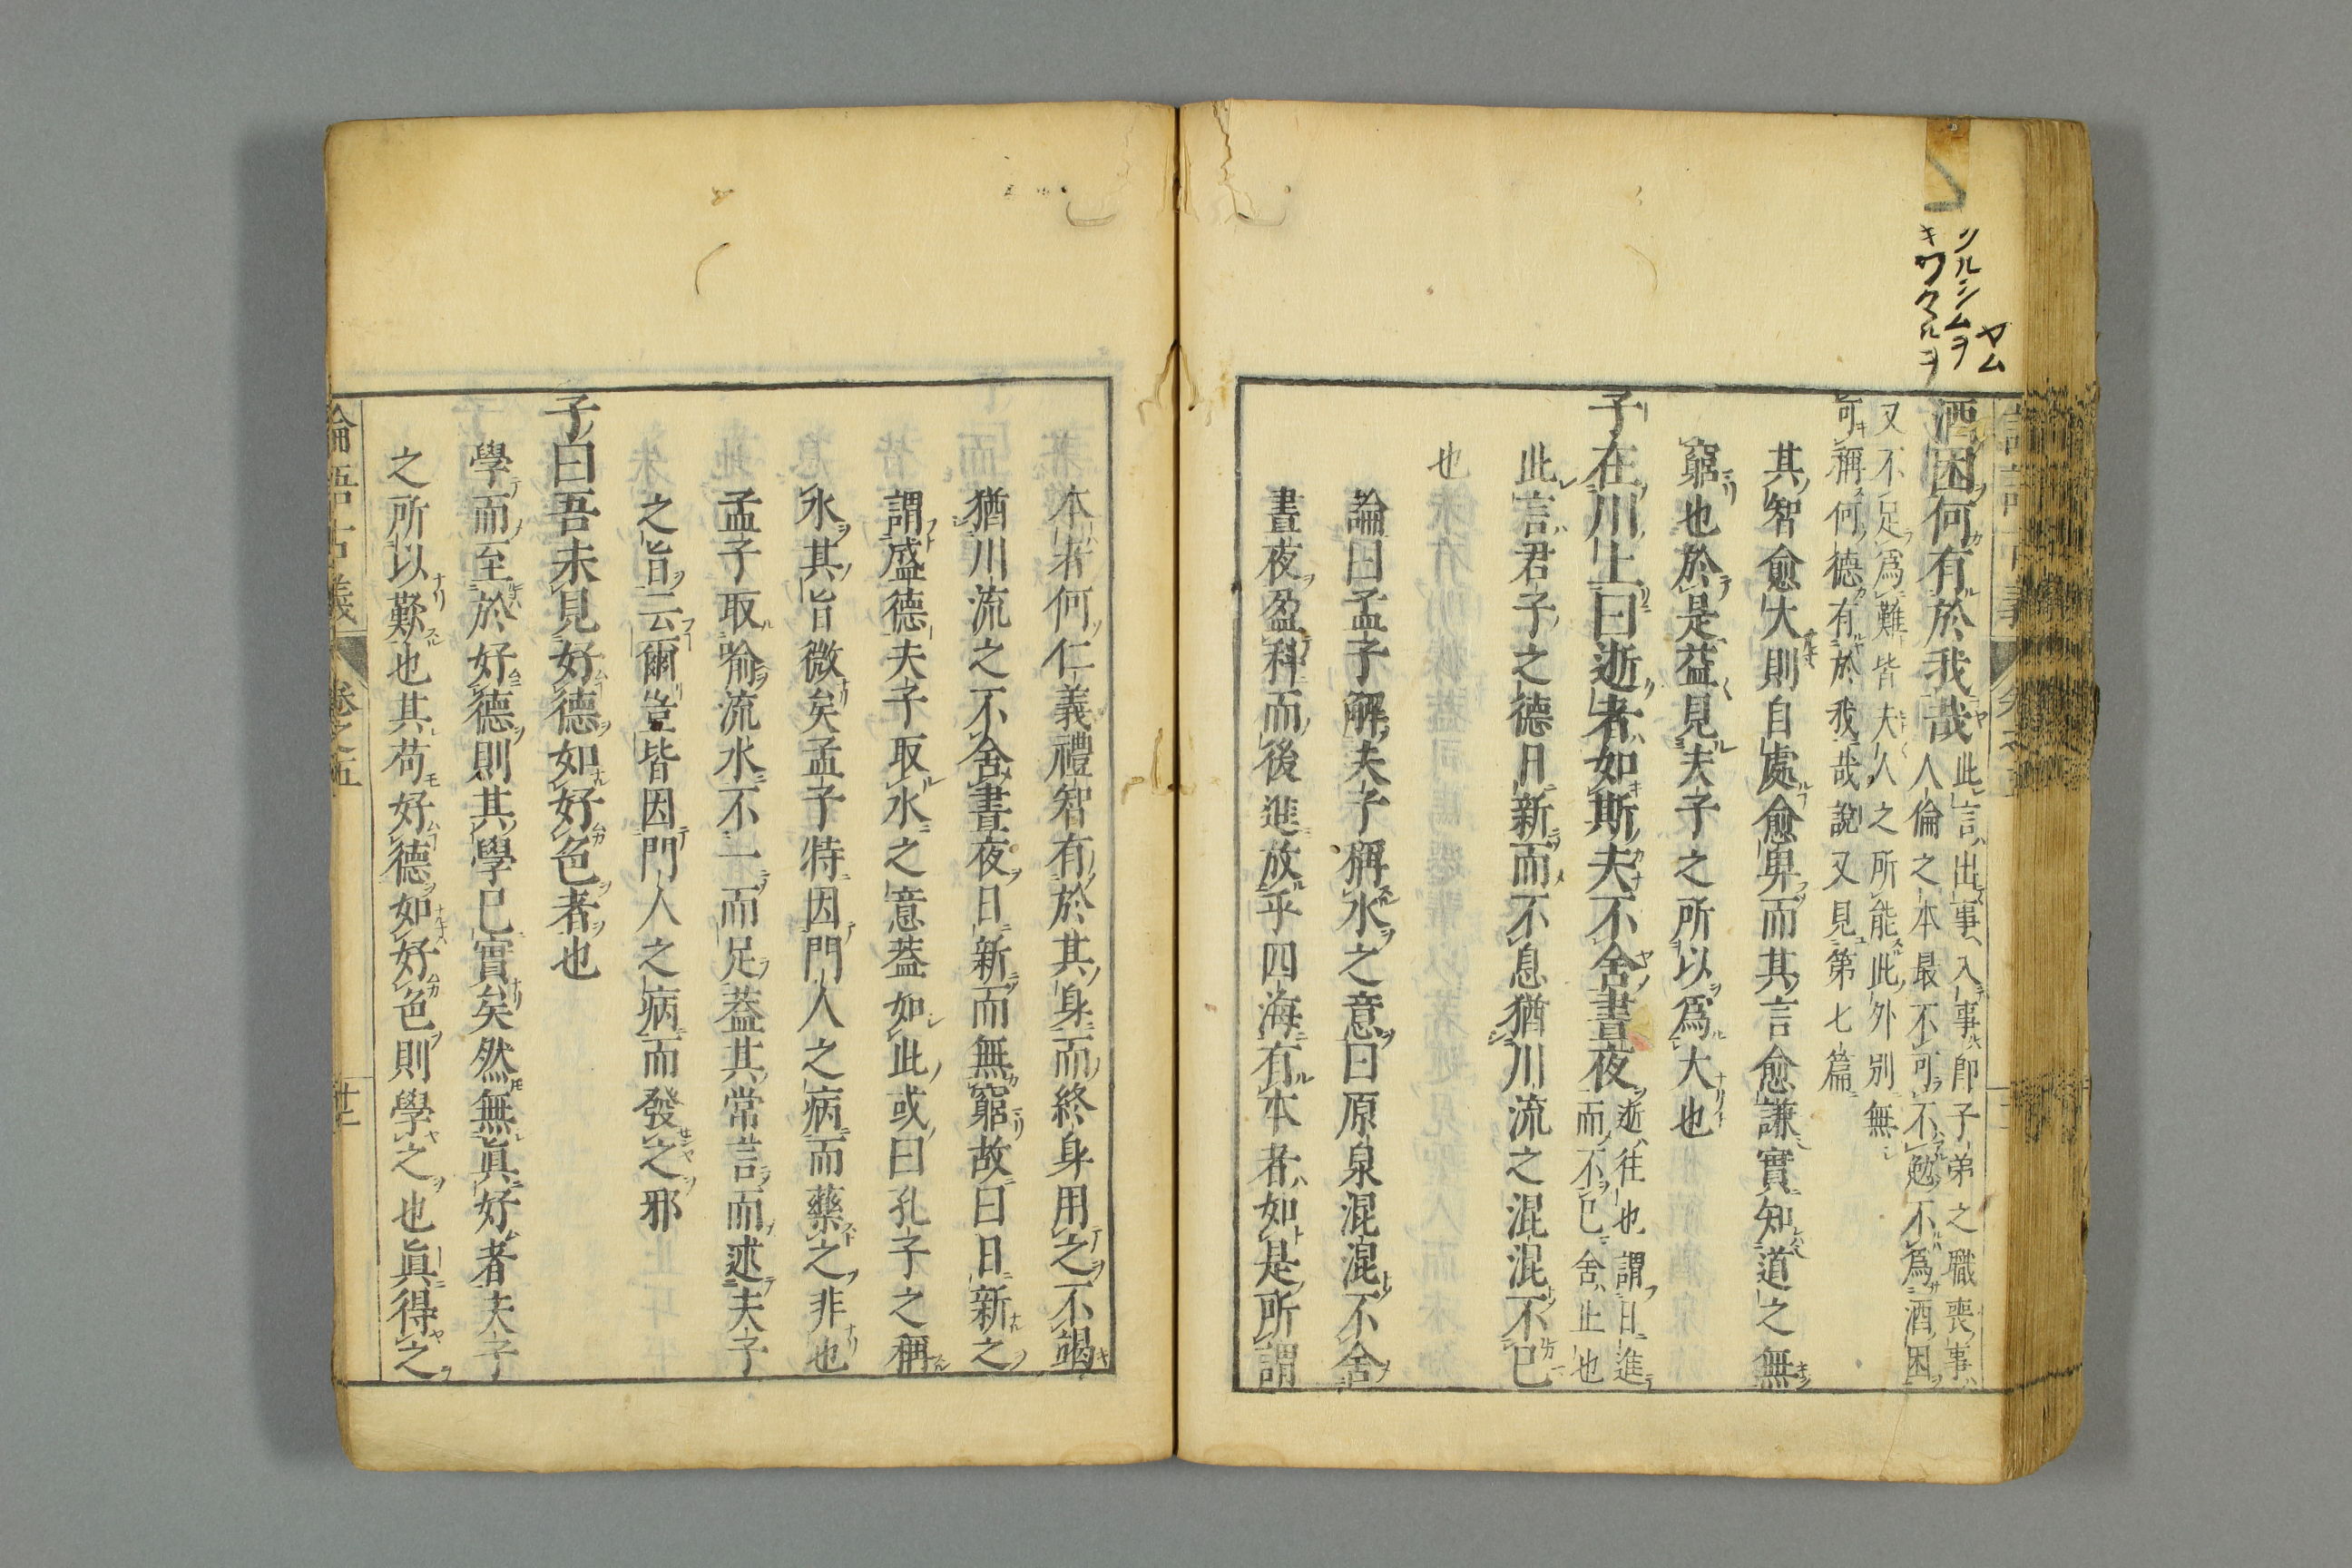 酒困何有於我哉
此言出事入事卽子弟之職喪事
人倫之本最不可不勉不爲酒困
又不足爲難皆夫人之所能此外別無
可稱何德有於我哉說又見第七篇
其智愈大則自處愈卑而其言愈謙實知道之無
窮也於是益見夫子之所以爲大也
子在川上曰逝者如斯夫不舍晝夜
逝往也謂日進
而不已舍止也
此言君子之德日新而不息猶川流之混混不已
也
論曰孟子解夫子稱水之意曰原泉混混不舍
晝夜盈科而後進放乎四海有本者如是所謂
本者何仁義禮智有於其身而終身用之不竭
猶川流之不舍晝夜日新而無窮故曰日新之
謂盛德夫子取水之意蓋如此或曰孔子之稱
水其旨微矣孟子特因門人之病而藥之非也
孟子取喻流水不一而足蓋其常言而述夫子
之旨云爾豈皆因門人之病而發之邪
子曰吾未見好德如好色者也
學而至於好德則其學已實矣然無眞好者夫子
之所以歎也其苟好德如好色則學之也眞得之
論語古義
卷之五
廿二